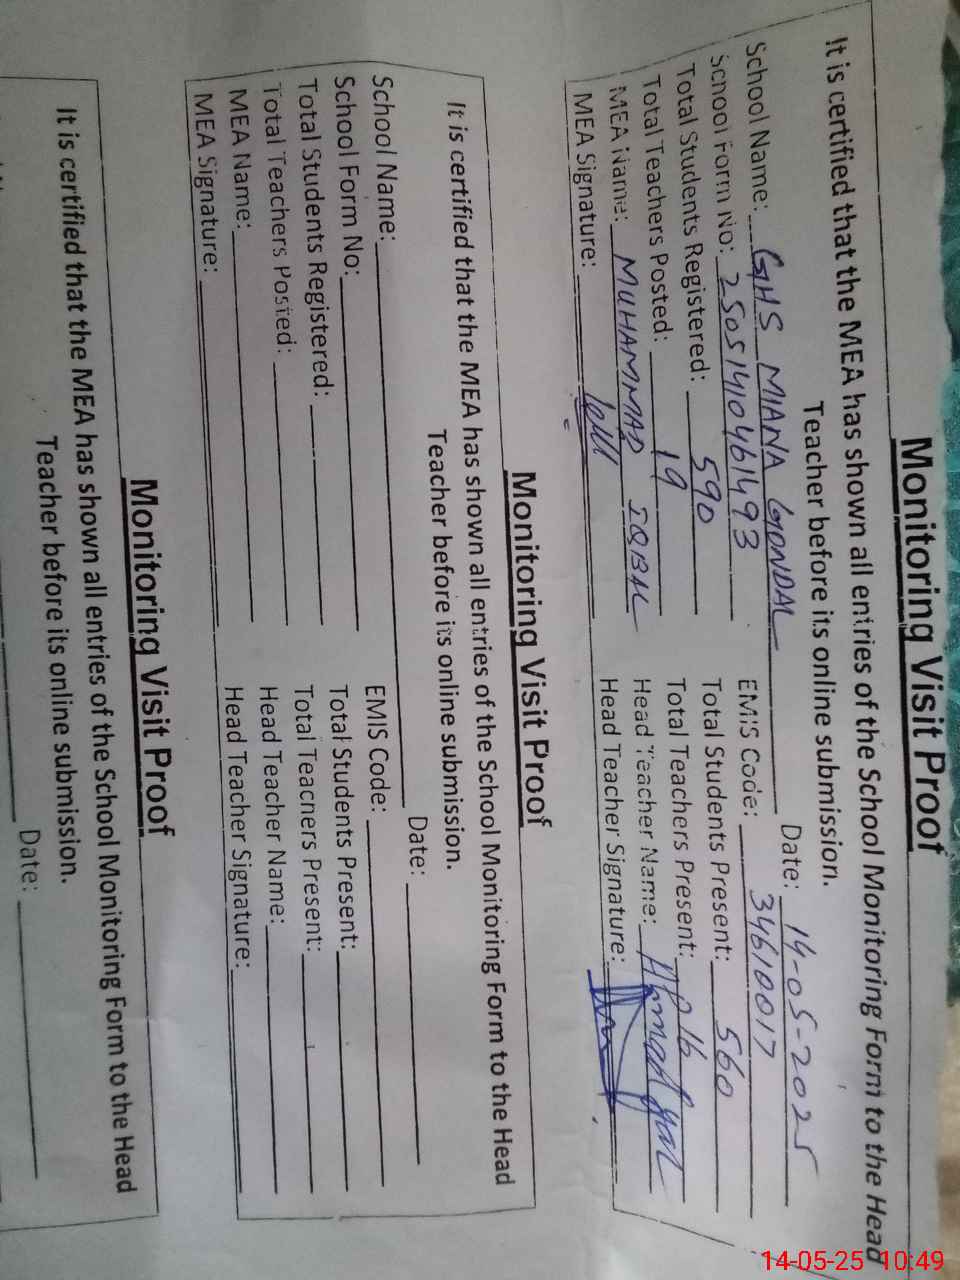 Monitoring Visit Proof
It is certified that the MEA has shown all entries of the School Monitoring Form to the Head
Teacher before its online submission.
Date: 14-05-2025
School Name: GHS MIANA GONDAL
School Form No: 25051410461493 EMIS Code: 34610017
Total Students Registered: 590 Total Students Present: 560
Total Teachers Posted: 19 Total Teachers Present: 16
MEA Name: MUHAMMAD IQBAL Head Teacher Name: Ahmad yar
MEA Signature: Head Teacher Signature:
Monitoring Visit Proof
It is certified that the MEA has shown all entries of the School Monitoring Form to the Head
Teacher before its online submission.
Date:
School Name:
School Form No: EMIS Code:
Total Students Registered: Total Students Present:
Total Teachers Posted: Total Teachers Present:
MEA Name: Head Teacher Name:
MEA Signature: Head Teacher Signature:
Monitoring Visit Proof
It is certified that the MEA has shown all entries of the School Monitoring Form to the Head
Teacher before its online submission.
Date:
14-05-25 10:49